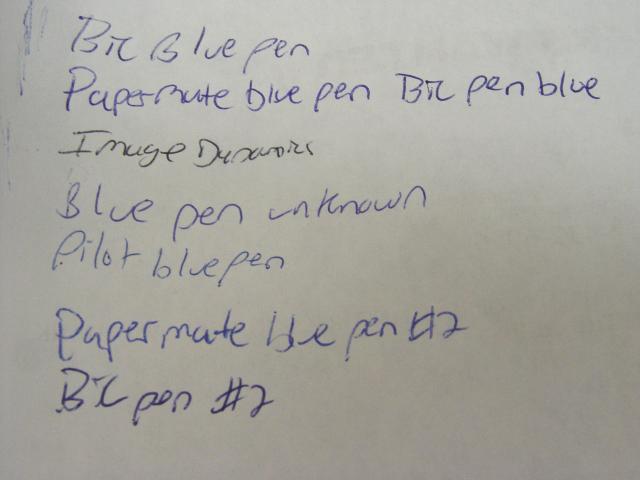 Bic Blue pen
Papermate blue pen Bic pen blue
Image Dynamics
Blue pen unknown
Pilot blue pen
Papermate blue pen #2
Bic pen #2